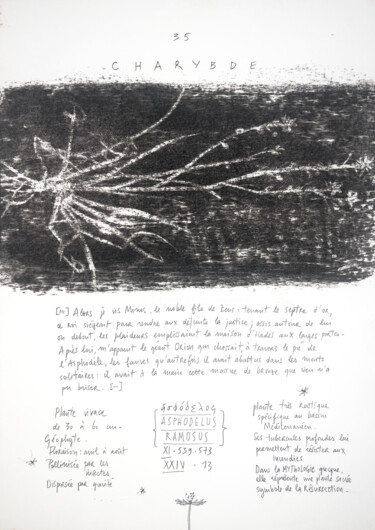 35
CHARYBDE
[...] Alors je vis Minos, le noble fils de Zeus : tenant le sceptre d'or,
ce roi siégeait pour rendre aux défunts la justice ; assis autour de lui
ou debout, les plaideurs emplissaient la maison d'Hadès aux larges portes.
Après lui, m'apparut le géant Orion qui chassait à travers le pré de
l'Asphodèle, les fauves qu'autrefois il avait abattus dans les monts
solitaires : il avait à la main cette massue de bronze que rien n'a
pu briser. [...]
Plante vivace
de 30 à 60 cm.
Géophyte.
Floraison : avril à août
Pollinisée par les
insectes
Dispersée par gravité
ἀσφόδελος
ASPHODELUS
RAMOSUS
XI . 539 . 573
XXIV . 13
plante très rustique
spécifique au bassin
Méditerranéen.
Ses tubercules profondes lui
permettent de résister aux
incendies
Dans la MYTHOLOGIE grecque,
elle représente une plante sacrée
symbole de la RÉSURRECTION.